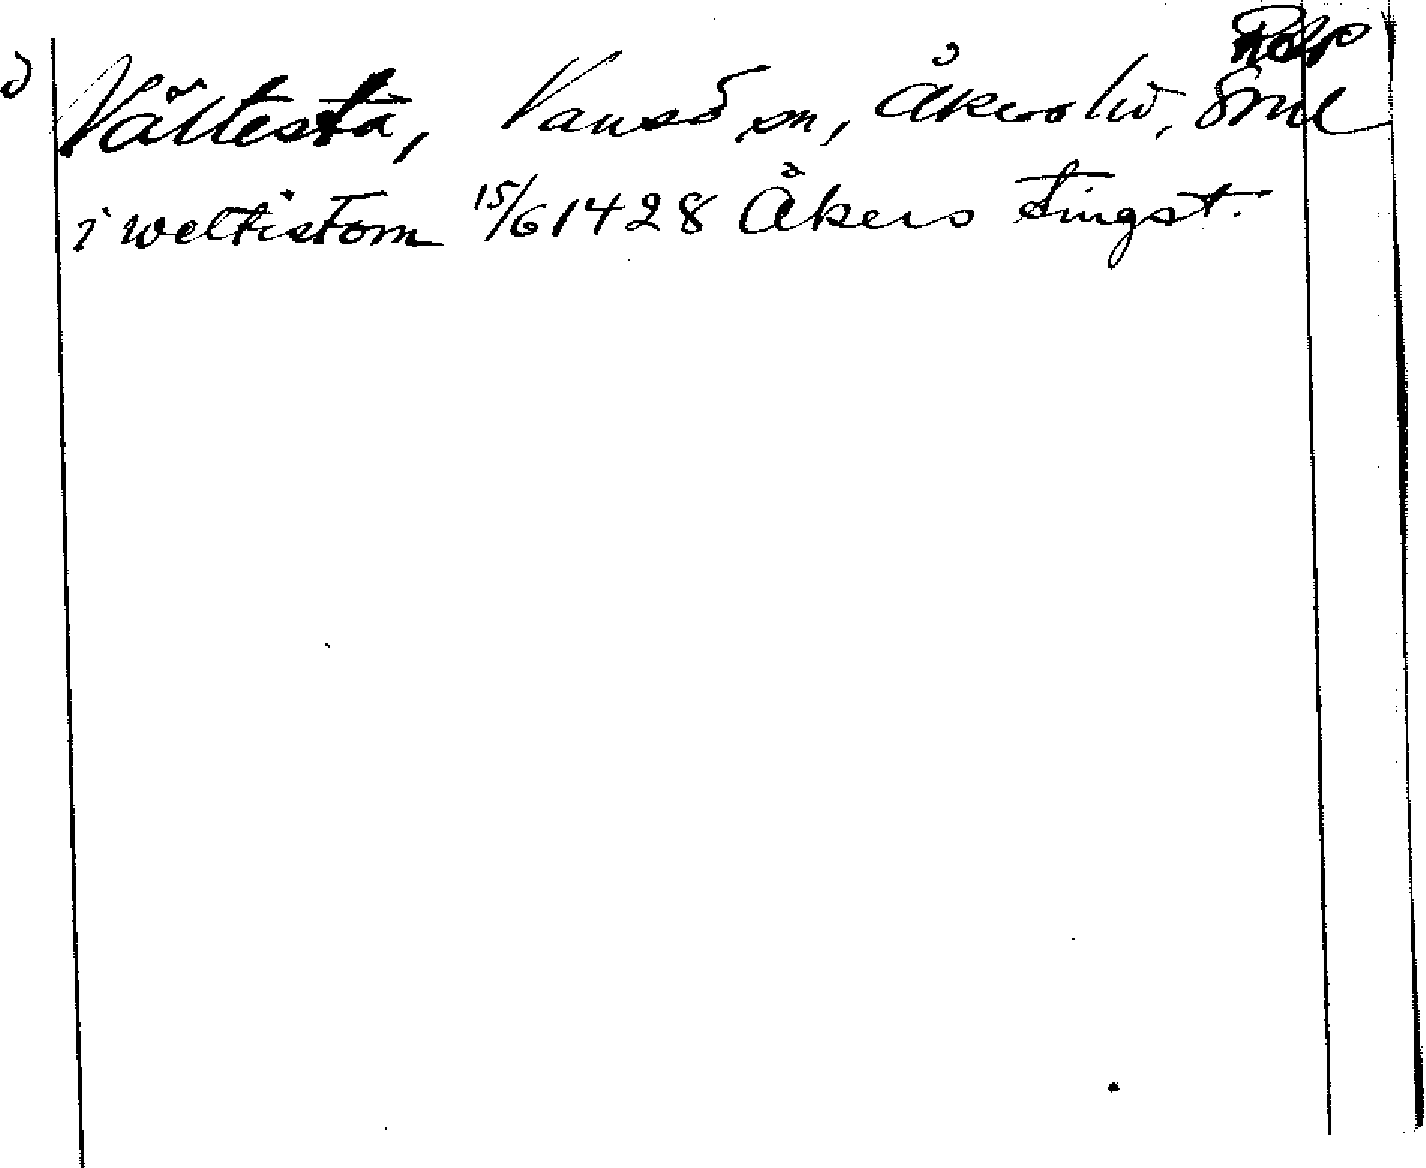 Vältesta, Vansö sn, Åkers hd, Srml
i weltistom 15/6 1428 Åkers tingst.